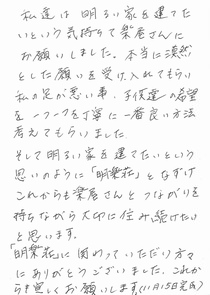 私達は明るい家を建てた
いという気持ちで楽居さんに
お願いしました。本当に漠然
とした願いを受け入れてもらい
私の足が悪い事、子供達の希望
を一つ一つを丁寧に一番良い方法
考えてもらいました
そして明るい家を建てたいという
思いのように「明楽荘」となずけ
これからも楽居さんとつながりを
持ちながら大切に住み続けたい
と思います。
「明楽荘」に関わっていただいた方々
にありがとうございました。これか
らも宜しくお願いします(11月15日完成)